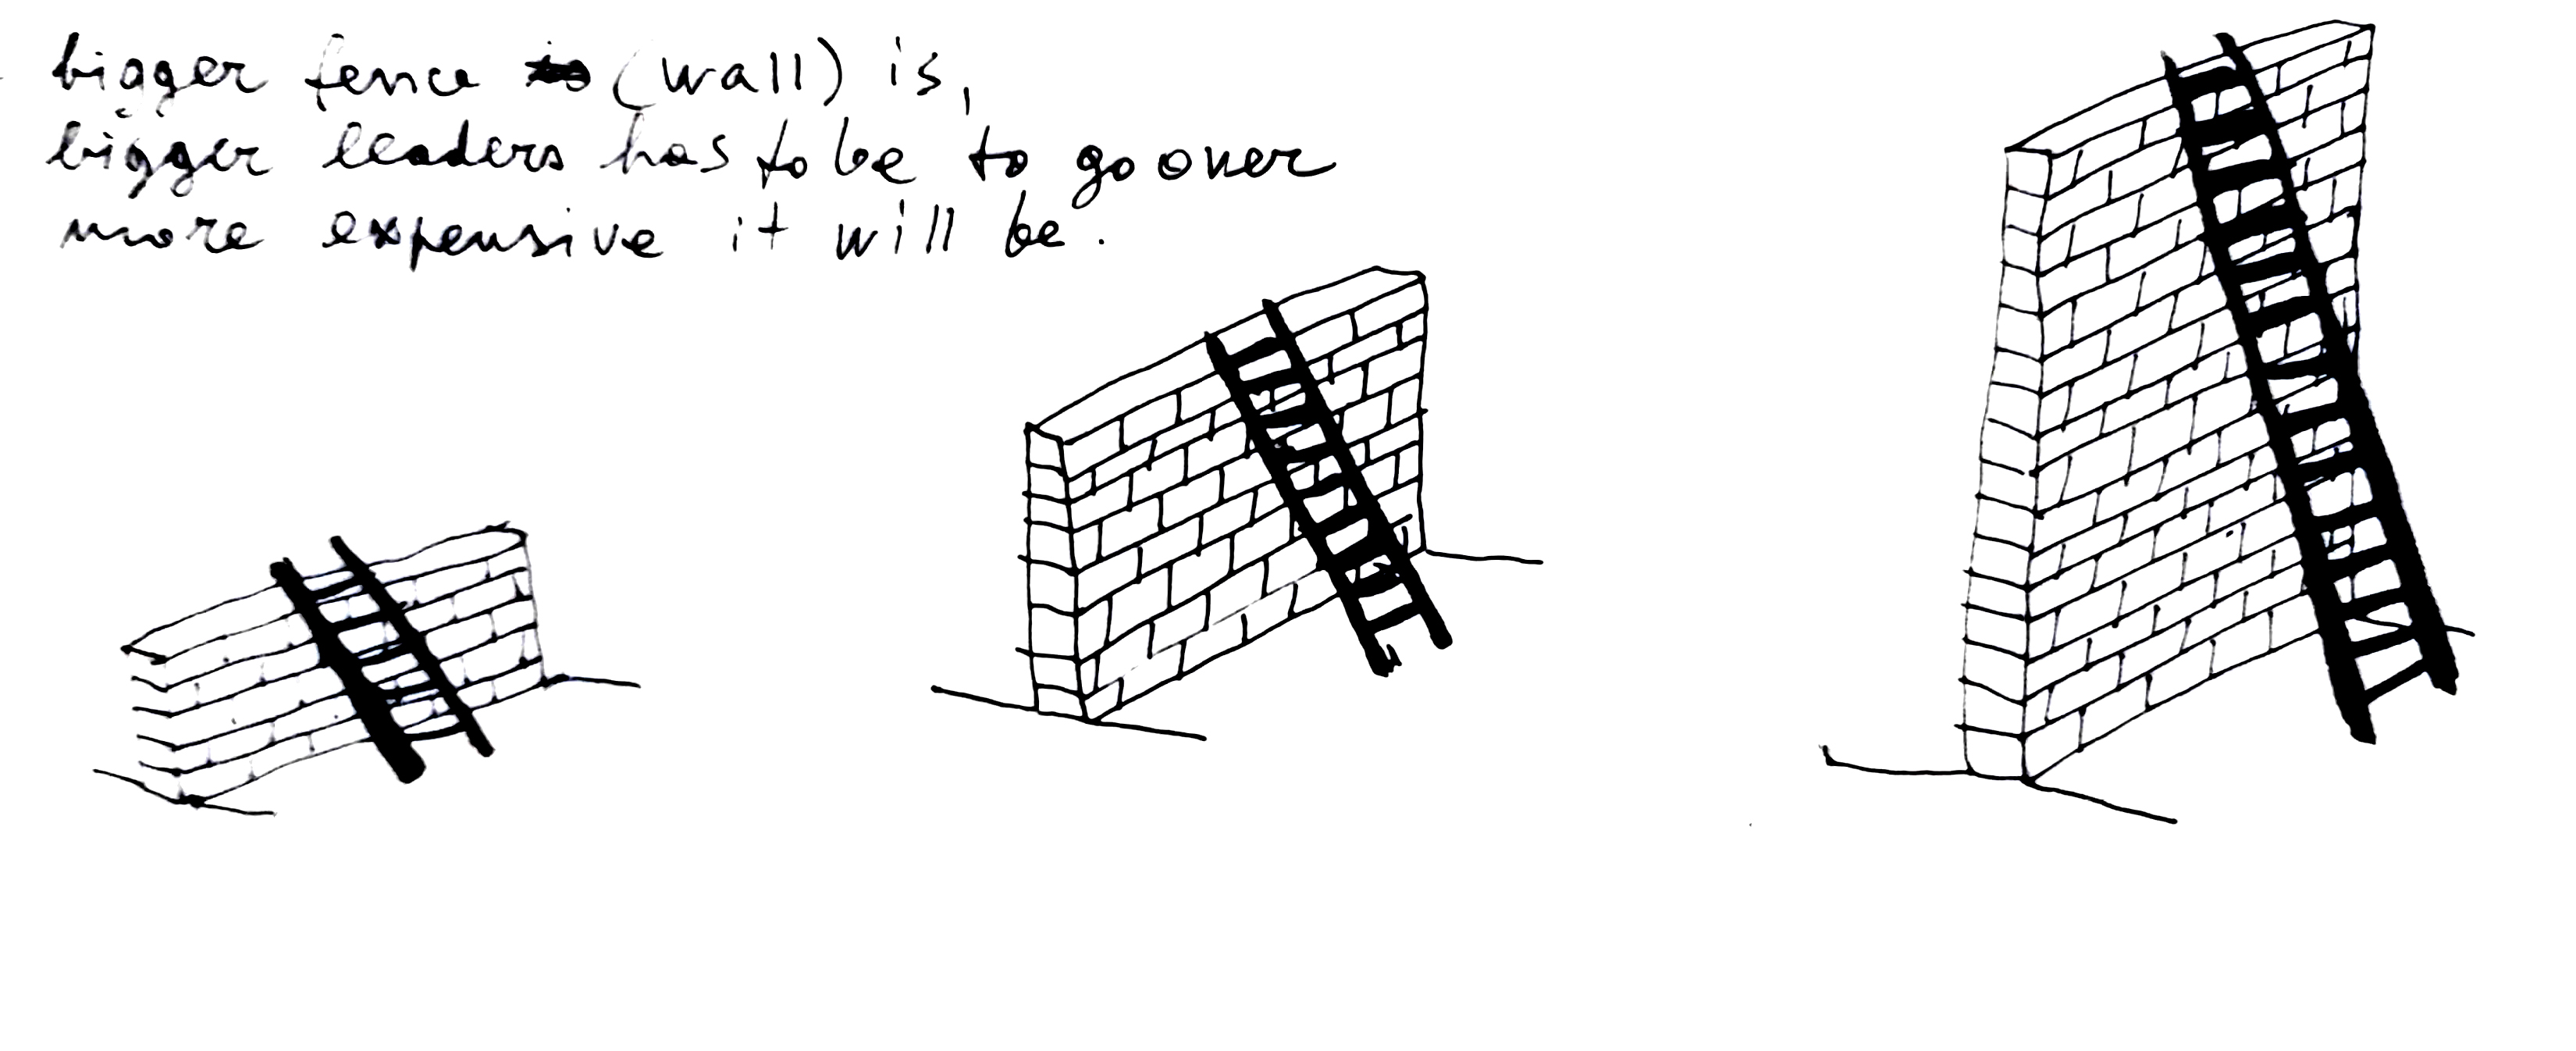 bigger fence (wall) is,
bigger leaders has to be to go over
more expensive it will be.